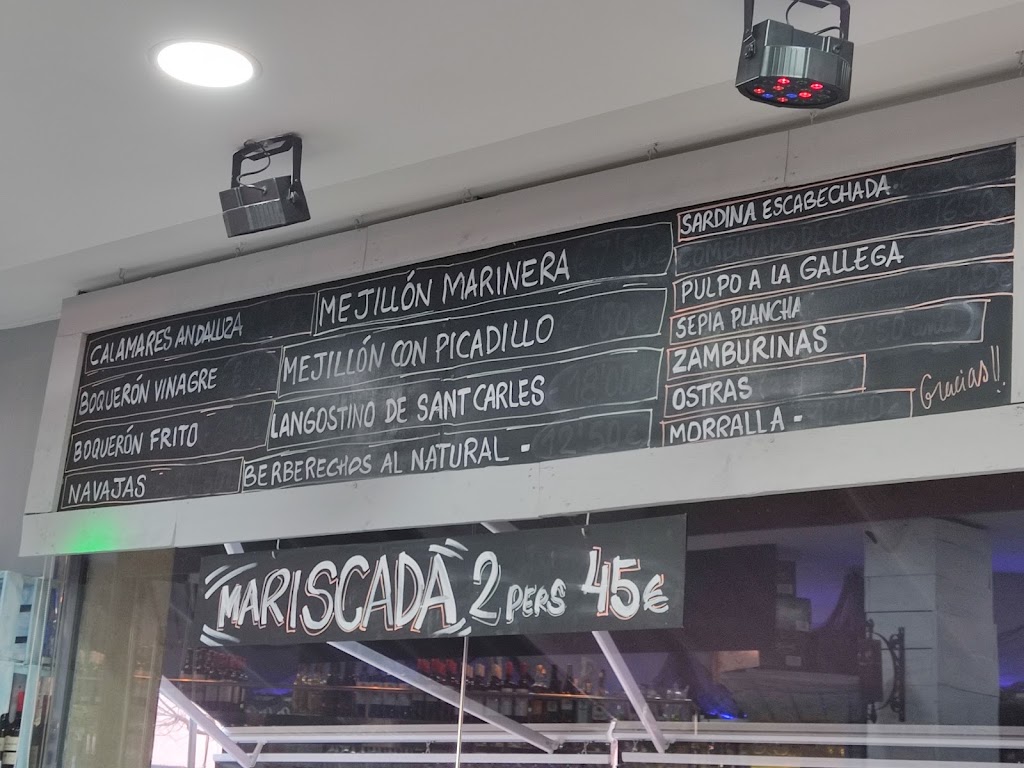 CALAMARES ANDALUZA
BOQUERÓN VINAGRE
BOQUERÓN FRITO
NAVAJAS
MEJILLÓN MARINERA
MEJILLÓN CON PICADILLO
LANGOSTINO DE SANT CARLES
BERBERECHOS AL NATURAL - 12'50€
SARDINA ESCABECHADA
PULPO A LA GALLEGA
SEPIA PLANCHA
ZAMBURINAS
OSTRAS
MORRALLA -
Gracias!!
MARISCADA 2 PERS 45€